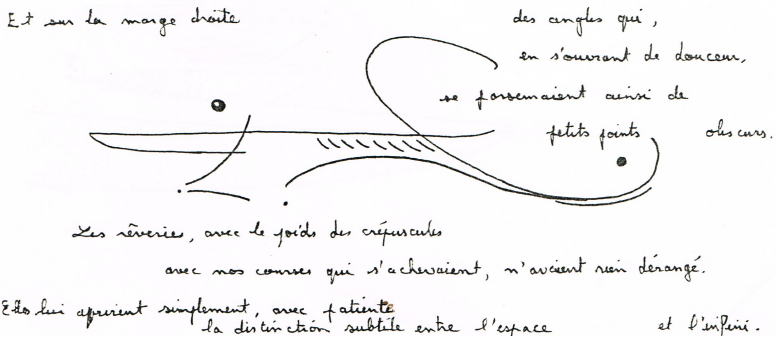 Et sur la marge droite
des angles qui,
en s'ouvrant de douceur,
se parsemaient ainsi de
petits points obscurs.
Les rêveries, avec le poids des crépuscules
avec nos courses qui s'achevaient, n'avaient rien dérangé.
Elles lui aprirent simplement, avec patiente
la distinction subtile entre l'espace et l'infini.